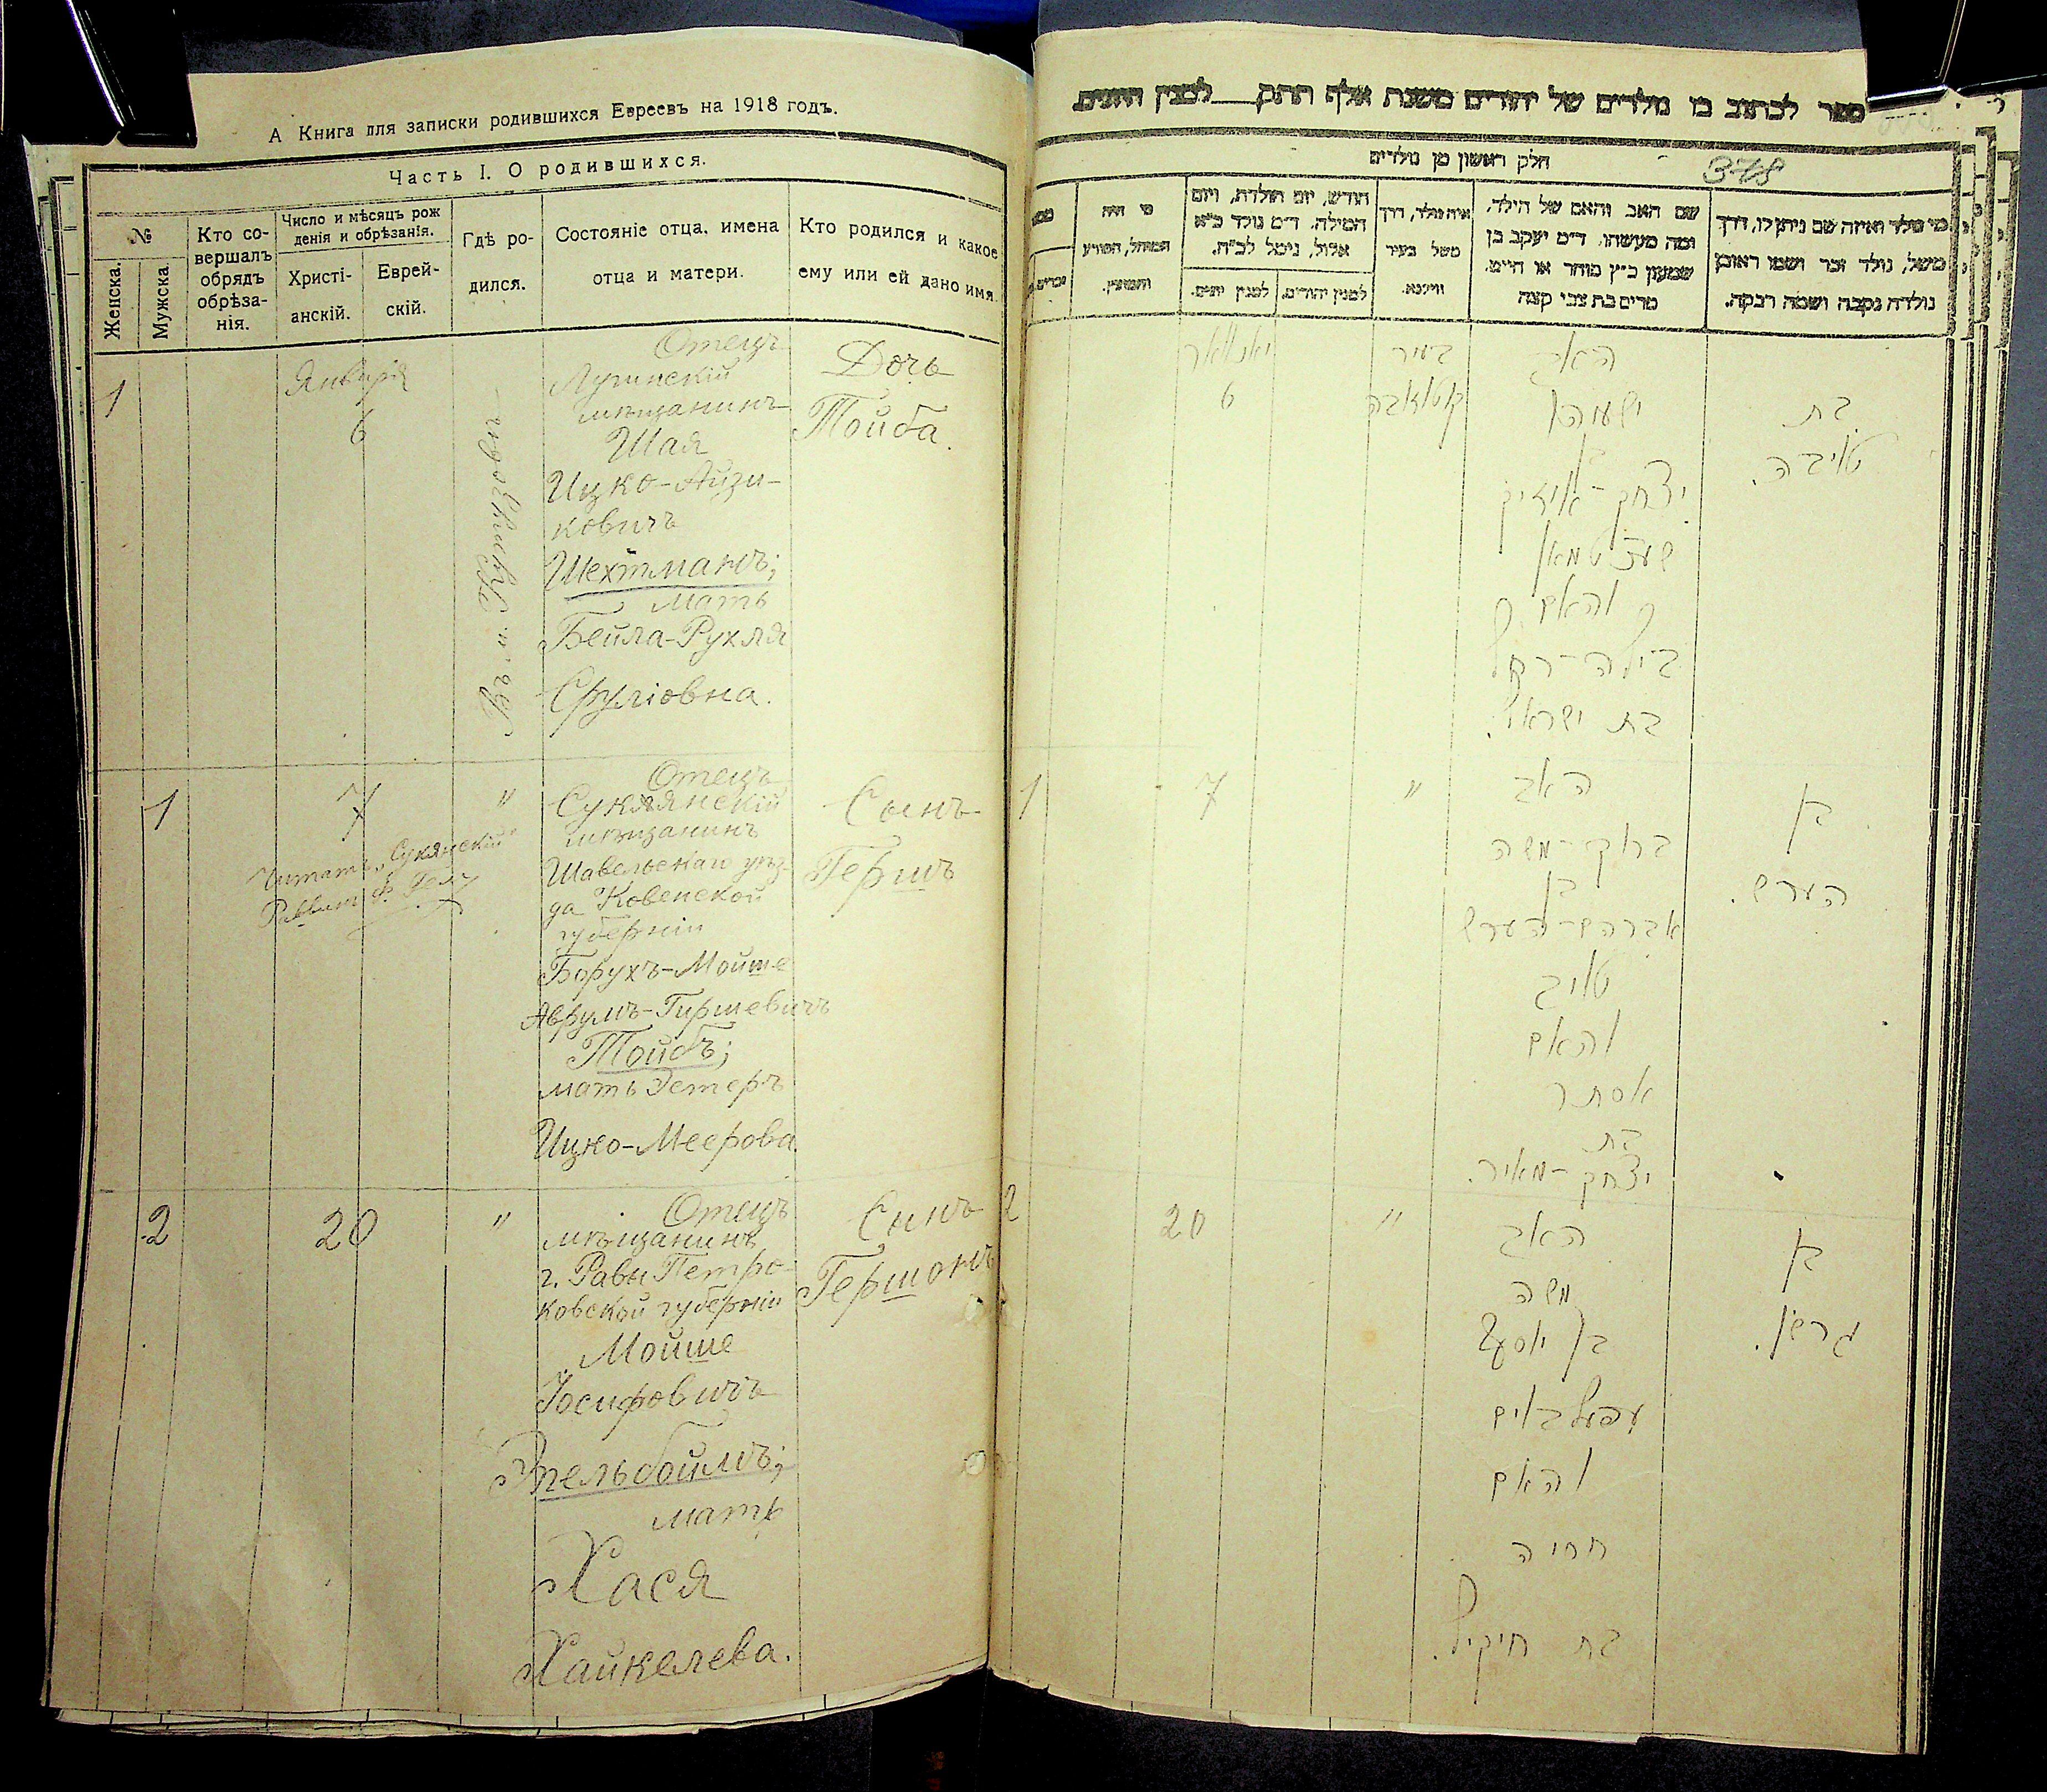 А Книга для записи родившихся Евреевъ на 1918 годъ.
Часть I. О родившихся.
№
Женска.
Мужска.
Кто со-
вершалъ
обрядъ
обрѣза-
нія.
Число и мѣсяцъ рож
денія и обрѣзанія.
Христі-
анскій.
Еврей-
скій.
Гдѣ ро-
дился.
Состояніе отца, имена
отца и матери.
Кто родился и какое
ему или ей дано имя.
1
Января
6
Отецъ
мѣщанинъ
Шая
Ицко-Айзи-
ковичъ
Шехтманъ;
мать
Бейла-Рухля
Сруліовна.
Дочь
Тойба.
1
7
"
Читать „Сукянскій"
Раввинъ
Отецъ
Сукянскій
мѣщанинъ
Шавельскаго уѣз-
да Ковенской
губерніи
Борухъ-Мойше
Аврумъ-Гиршевичъ
Тойбъ;
мать Эстеръ
Ицко-Меерова.
Сынъ
Гершъ
2
20
"
Отецъ
мѣщанинъ
г. Равы Петро-
ковской губерніи
Мойше
Іосифовичъ
Эпельбоймъ;
мать
Хася
Хайкелева.
Сынъ
Гершонъ
ספר לכתוב בו נולדים של יהודים משנת אלף תתק___ למנין היונים
378
חלק ראשון מן נולדים
מי נולד ואיזה שם ניתן לו, דרך
משל, נולד זכר ושמו ראובן
נולדה נקבה ושמה רבקה.
שם האב והאם של הילד,
ומה מעשהו. ד״מ יעקב בן
שמעון כ״ץ סוחר או חייט.
מרים בת צבי קצה
איה נולד, דרך
משל בעיר
ווילנא.
חודש, יום תולדת, ויום
המילה. ד״מ נולד כ״א
אלול, נימל לכ״ח.
למנין יהודים.
למנין יונים.
מי היה
המוהל, הפורע
והמוצץ.
בת
טויבה.
האב
ישעיהו
בן
יצחק-אייזיק
שעכטמאן
והאם
ביילה-רחל
בת ישראל.
בעיר
יאנואר
6
בן
הערש.
האב
ברוך-משה
בן
אברהם-הערש
טויב
והאם
אסתר
בת
יצחק-מאיר.
"
7
1
בן
גרשון.
האב
משה
בן יוסף
עפעלבוים
והאם
חסיה
בת חייקיל.
"
20
2